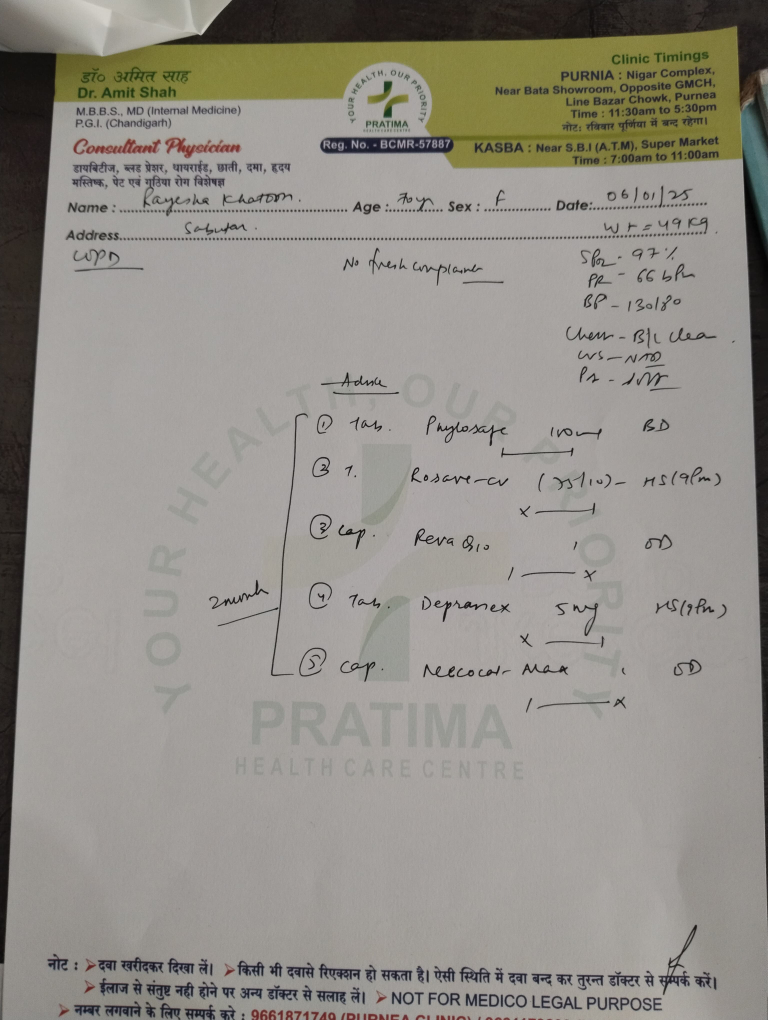 डॉ० अमित साह
Dr. Amit Shah
M.B.B.S., MD (Internal Medicine)
P.G.I. (Chandigarh)
Consultant Physician
डायबिटीज, ब्लड प्रेशर, थायराईड, छाती, दमा, हृदय
मस्तिष्क, पेट एवं गठिया रोग विशेषज्ञ
YOUR HEALTH, OUR PRIORITY
PRATIMA
HEALTH CARE CENTRE
Reg. No. - BCMR-57887
Clinic Timings
PURNIA : Nigar Complex,
Near Bata Showroom, Opposite GMCH,
Line Bazar Chowk, Purnea
Time : 11:30am to 5:30pm
नोट: रविवार पूर्णिया में बन्द रहेगा।
KASBA : Near S.B.I (A.T.M), Super Market
Time : 7:00am to 11:00am
Name : Rayesha Khatoon. Age : 70yr Sex : F Date: 06/01/25
Address Wt = 49 kg
No fresh complaints
SPO2 - 97 %
PR - 66 bpm
BP - 130/80
Chest - B/L clear
CVS - NAD
PA - soft
Advice
① Tab. Phylosafe 100mg BD
② T. Rosave-cv (75/10) - HS (9pm)
x — 1
③ Cap. Reva Q10 1 OD
1 — x
2 month
④ Tab. Depranex 5mg HS (9pm)
x — 1
⑤ Cap. Max 1 OD
1 — x
YOUR HEALTH, OUR PRIORITY
PRATIMA
HEALTH CARE CENTRE
नोट : ➤ दवा खरीदकर दिखा लें। ➤ किसी भी दवासे रिएक्शन हो सकता है। ऐसी स्थिति में दवा बन्द कर तुरन्त डॉक्टर से सम्पर्क करें।
➤ ईलाज से संतुष्ट नही होने पर अन्य डॉक्टर से सलाह लें। ➤ NOT FOR MEDICO LEGAL PURPOSE
➤ नम्बर लगवाने के लिए सम्पर्क करे : 9661871749 (PURNEA CLINIC)